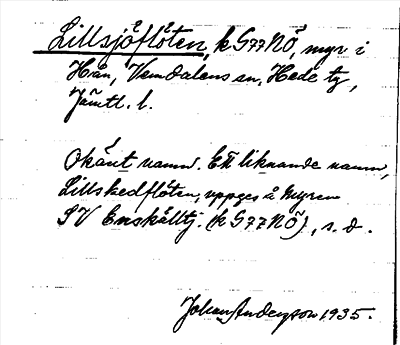 Lillsjöflöten, k G77NÖ, myr i
Hrån, Vemdalens sn, Hede tg,
Jämtl. l.
Okänt namn. Ett liknande namn,
Lillshedflöten, uppges å myren
SV Enskälltj. (k G77NÖ), s. d.
Johan Anderzson 1935.